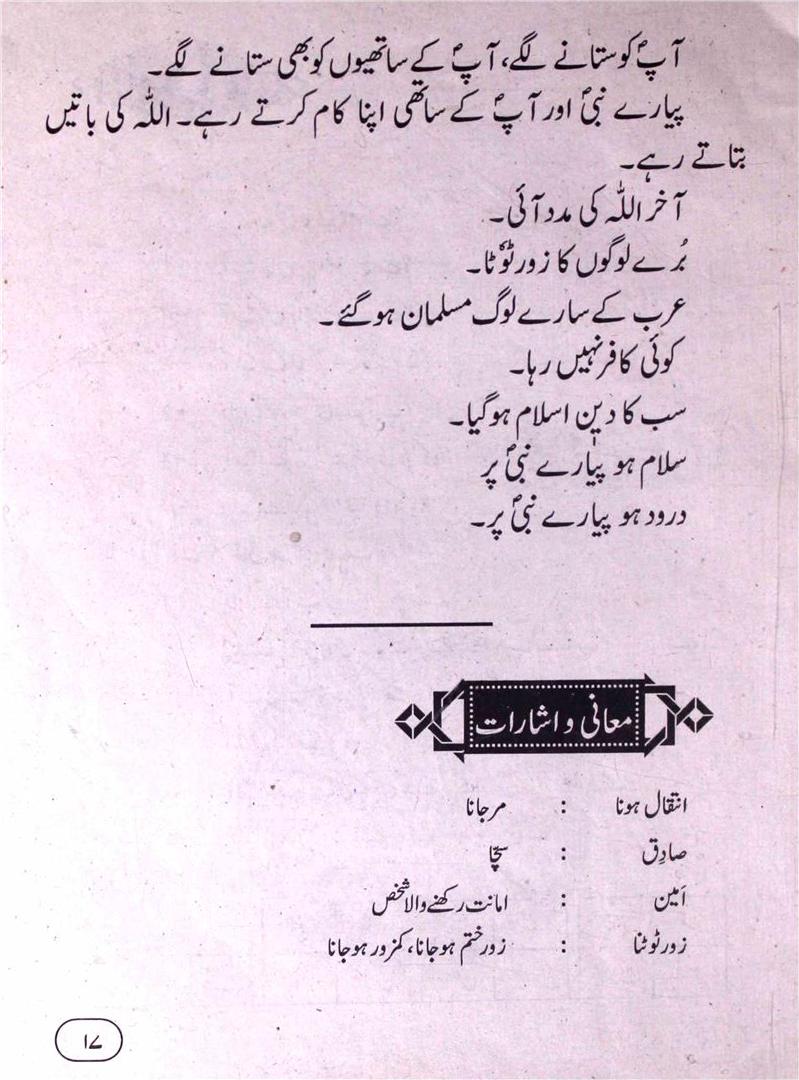 آپؐ کو ستانے لگے، آپؐ کے ساتھیوں کو بھی ستانے لگے۔
پیارے نبیؐ اور آپؐ کے ساتھی اپنا کام کرتے رہے۔ اللہ کی باتیں
بتاتے رہے۔
آخر اللہ کی مدد آئی۔
بُرے لوگوں کا زور ٹوٗٹا۔
عرب کے سارے لوگ مسلمان ہوگئے۔
کوئی کافر نہیں رہا۔
سب کا دین اسلام ہوگیا۔
سلام ہو پیارے نبیؐ پر
درود ہو پیارے نبیؐ پر۔
معانی و اشارات
انتقال ہونا : مرجانا
صادِق : سچّا
اَمین : امانت رکھنے والا شخص
زور ٹوٹنا : زور ختم ہوجانا، کمزور ہوجانا
۱۷